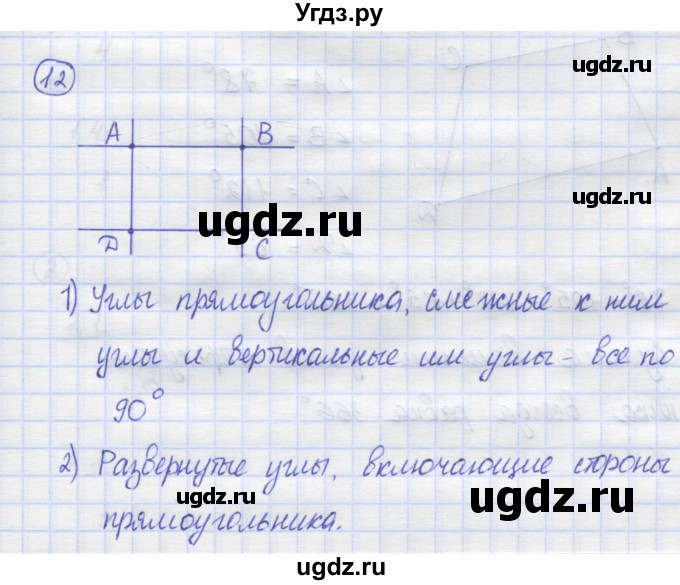 Угдз.ру
12
ugdz.ru
A B
ugdz.ru
ugdz.ru
D C
1) Углы прямоугольника, смежные к ним
углы и вертикальные им углы - все по
90°
2) Развернутые углы, включающие стороны
ugdz.ru
ugdz.ru
прямоугольника.
ugdz.ru